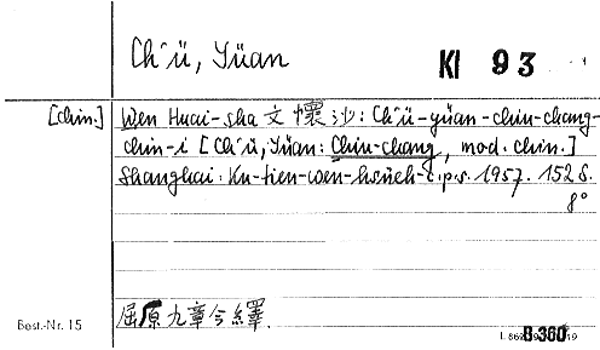 Ch'ü, Yüan
Kl 93
[chin.] Wen Huai-sha 文懷沙: Ch'ü-yüan-chiu-chang-
chin-i [Ch'ü, Yüan: Chiu-chang, mod. chin.]
Shanghai: Ku-tien-wen-hsüeh-c.p.s. 1957. 152 S.
8°
屈原九章今繹.
Best.-Nr. 15
B.360